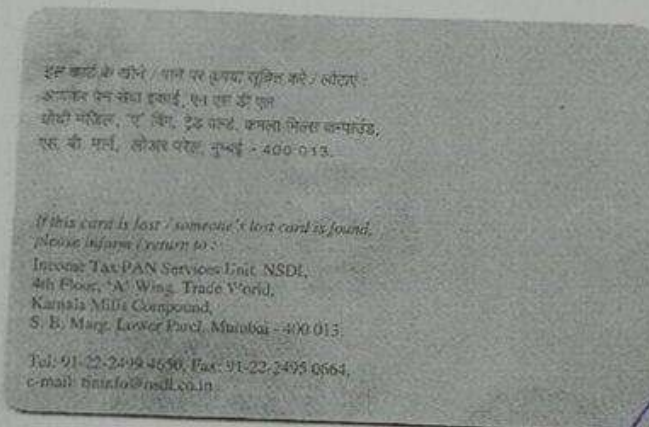 इस कार्ड के खोने / पाने पर कृपया सूचित करें / लौटाएं :
आयकर पैन सेवा इकाई, एन एस डी एल
चौथी मंजिल, 'ए' विंग, ट्रेड वर्ल्ड, कमला मिल्स कम्पाउंड,
एस. बी. मार्ग, लोअर परेल, मुम्बई - 400 013.
If this card is lost / someone's lost card is found,
please inform / return to :
Income Tax PAN Services Unit, NSDL,
4th Floor, 'A' Wing, Trade World,
Kamala Mills Compound,
S. B. Marg, Lower Parel, Mumbai - 400 013.
Tel: 91-22-2499 4650, Fax: 91-22-2495 0664,
e-mail: tininfo@nsdl.co.in